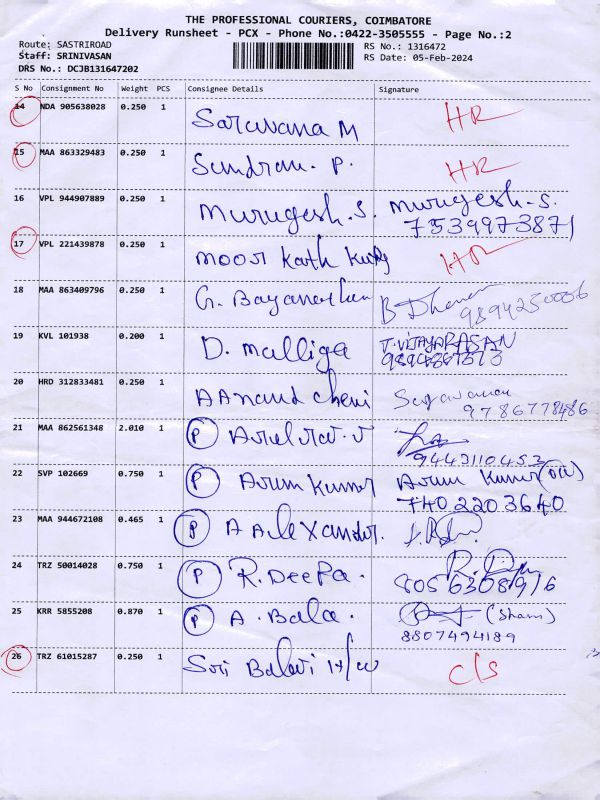 THE PROFESSIONAL COURIERS, COIMBATORE
Delivery Runsheet - PCX - Phone No.:0422-3505555 - Page No.:2
Route: SASTRIROAD
RS No.: 1316472
Staff: SRINIVASAN
RS Date: 05-Feb-2024
DRS No.: DCJB131647202
S No Consignment No Weight PCS Consignee Details Signature
14 NDA 905638028 0.250 1 Saravana M HR
15 MAA 863329483 0.250 1 Sundram. P. HR
16 VPL 944907889 0.250 1 Murugesh.S. Murugesh.S.
7539973871
17 VPL 221439878 0.250 1 Moor Kath HR
18 MAA 863409796 0.250 1 G. B
9894230006
19 KVL 101938 0.200 1 D. Malliga T.VIJAYARASAN
20 HRD 312833481 0.250 1 A Anand
9786778486
21 MAA 862561348 2.010 1 P
9443110453
22 SVP 102669 0.750 1 P Arum Kumar Arum Kumar
7402203640
23 MAA 944672108 0.465 1 P A Alexander.
24 TRZ 50014028 0.750 1 P R. Deepa. R.
8056308916
25 KRR 5855208 0.870 1 P A. Bala. (Sham)
8807494189
26 TRZ 61015287 0.250 1 Sri Balaji H/W C/S